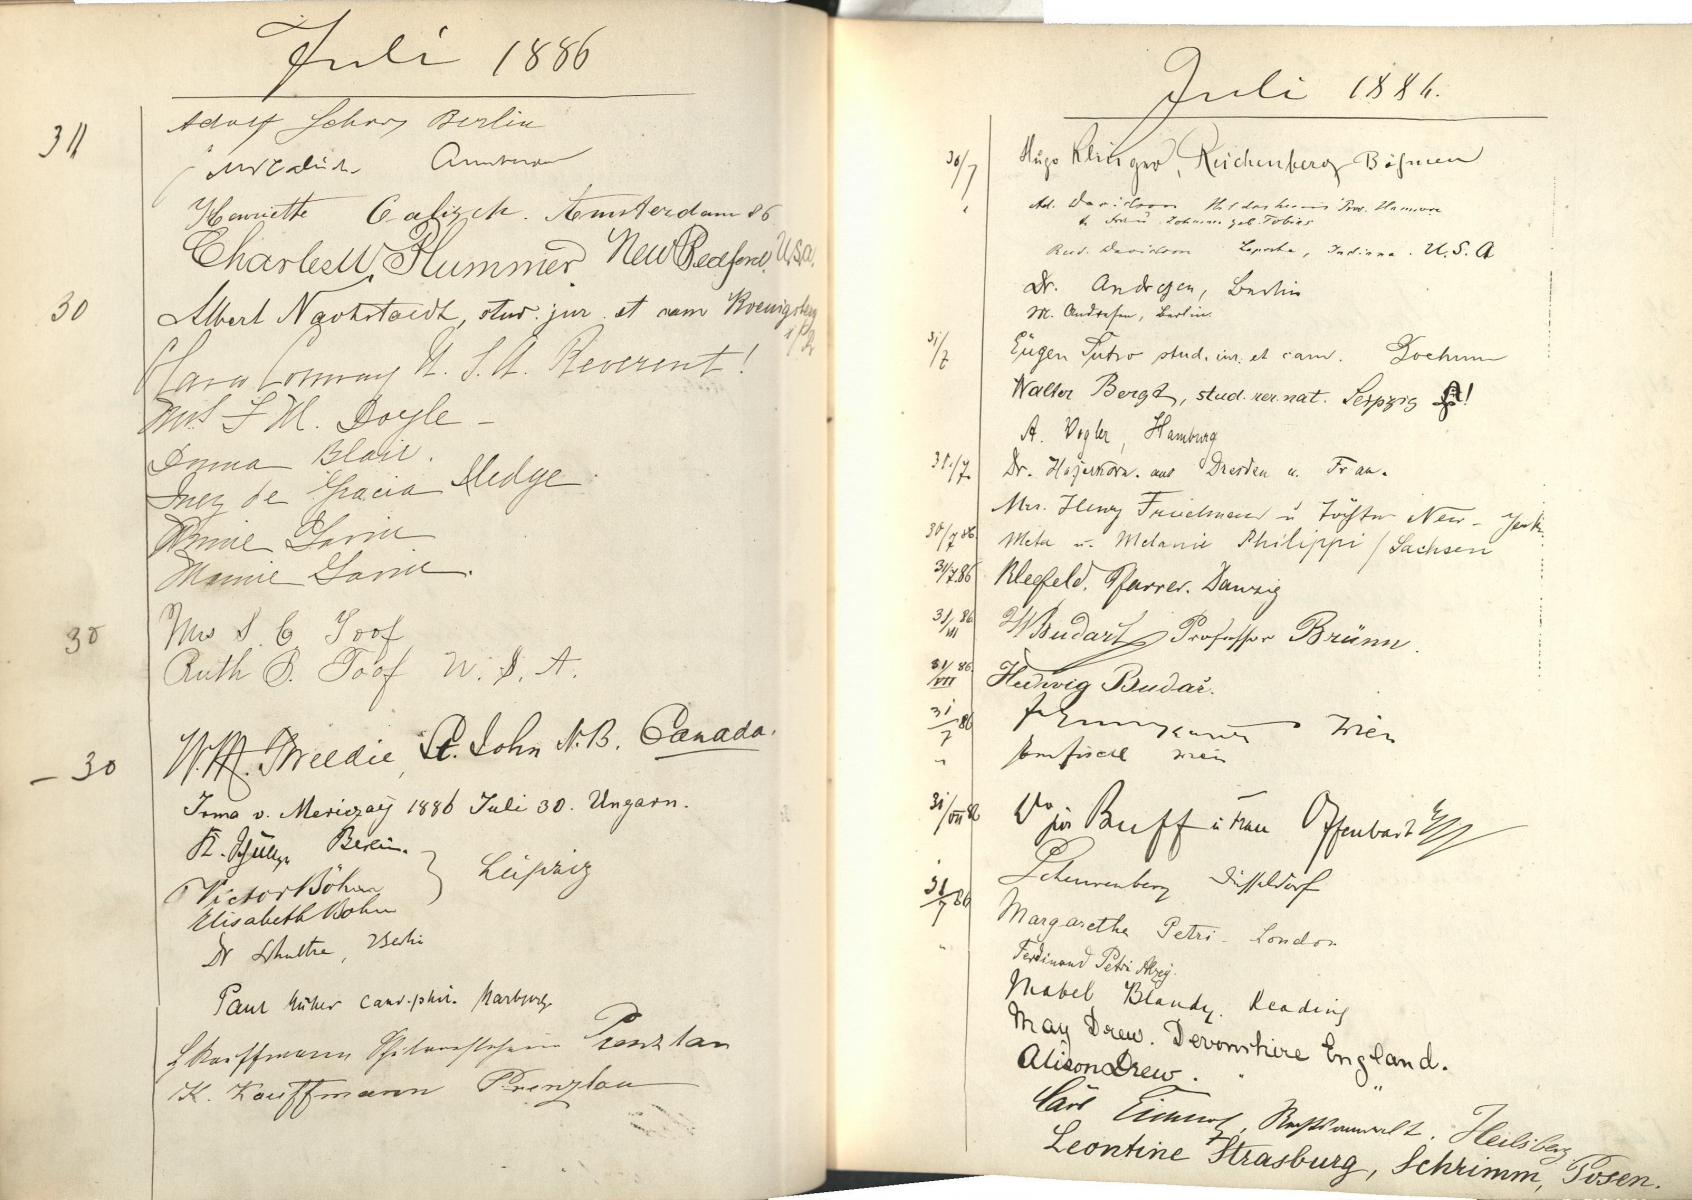 Juli 1886
Adolf Berlin
Henriette Calisch. Amsterdam 86
Charles W. Plummer New Bedford. U.S.a.
30 Albert Nachstaedt, stud. jur. et cam Koenigsberg
i/Pr
Clara Conway U. S. A. Reverent!
Mrs F M. Doyle -
Emma Blair.
Inez de Gracia Medge
Minnie Gavin
Mamie Gavin.
30 Mrs S. C Toof
Ruth S. Toof U. S. A.
- 30 W. M. Tweedie, St. John N.B. Canada.
Irma v. Mericzay 1886 Juli 30. Ungarn.
K. Berlin.
Victor Böhm } Leipzig
Elisabeth Bohm
Dr Schultze, Berlin
Paul cand. phil. Marburg
L Kauffmann Prenzlau
K. Kauffmann Prenzlau
Juli 1886.
30/7 Hugo Klinger, Reichenberg Böhmen
Ad. Davidson Hildesheim Prov. Hannover
u. Frau Johanna geb. Tobias
Rud. Davidson Laporte, Indiana. U. S. A
Dr. Andresen, Berlin
M. Andresen, Berlin.
31/7 Eugen Tutro stud. iur. et cam. Bochum
Walter Bergt, stud. rer. nat. Leipzig
A. Vogler, Hamburg
31./7. Dr. aus Dresden u. Frau.
Mrs. Henry Friedman u Töchter New-York
30/7 86. Meta u. Melanie Philippi / Sachsen
31/7.86 Klefeld. Pfarrer. Danzig
31/VII 86. W Budař Professor Brünn.
31/VII 86. Hedwig Budař.
31/7 86 Wien
" Wien
31/VII 86 Major Buff u Frau Offenbach
Scheurenberg Düsseldorf
31/7 86 Margarethe Petri - London
" Ferdinand Petri Alzey.
Mabel Blandy. Reading
May Drew. Devonshire England.
Alison Drew. " "
Carl Rechtsanwalt. Heilsberg
Leontine Strasburg, Schrimm, Posen.